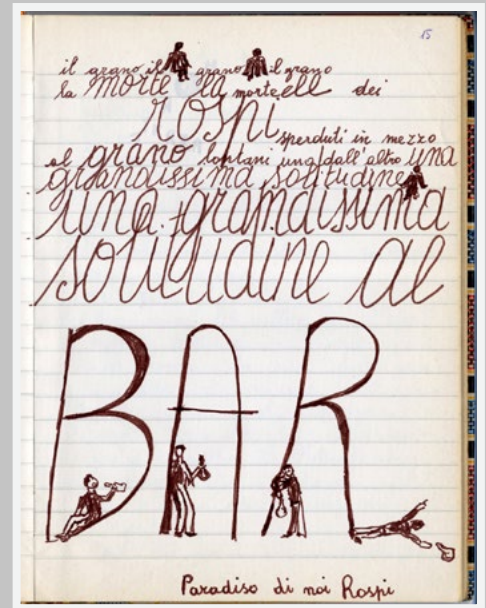 15
il grano il grano il grano
la morte la morte ell dei
rospi
sperduti in mezzo
al grano lontani una dall'altro una
grandissima solitudine
una grandissima
solitudine al
BAR
Paradiso di noi Rospi